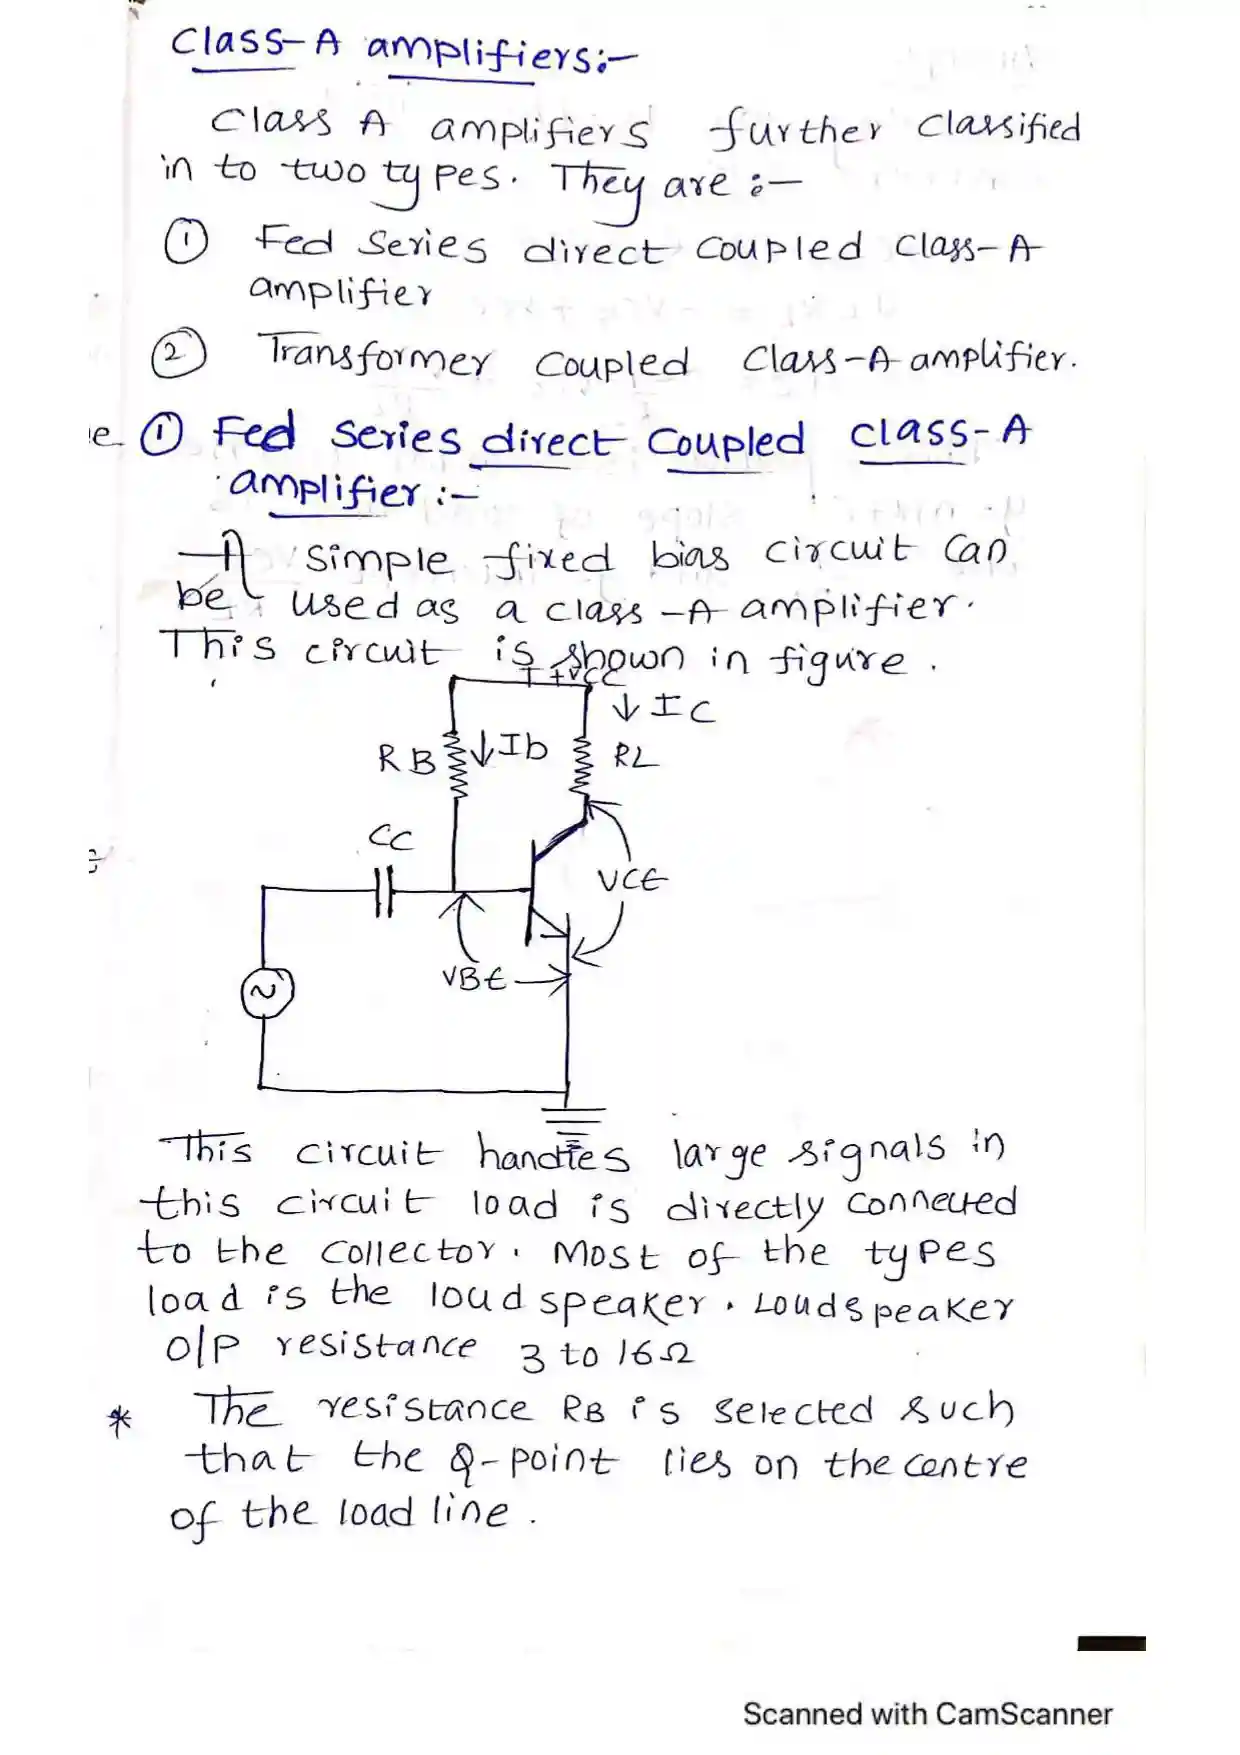 Class-A amplifiers:-
Class A amplifiers further classified
in to two types. They are :-
① Fed Series direct coupled class-A
amplifier
② Transformer coupled class-A amplifier.
e ① Fed series direct coupled class-A
amplifier :-
A simple fixed bias circuit can
be used as a class-A amplifier.
This circuit is shown in figure.
+VCC
↓ IC
RB ↓Ib RL
CC
VCE
VBE
~
This circuit handles large signals in
this circuit load is directly connected
to the collector. Most of the types
load is the loud speaker. Loudspeaker
O/P resistance 3 to 16Ω
* The resistance RB is selected such
that the Q-point lies on the centre
of the load line.
Scanned with CamScanner